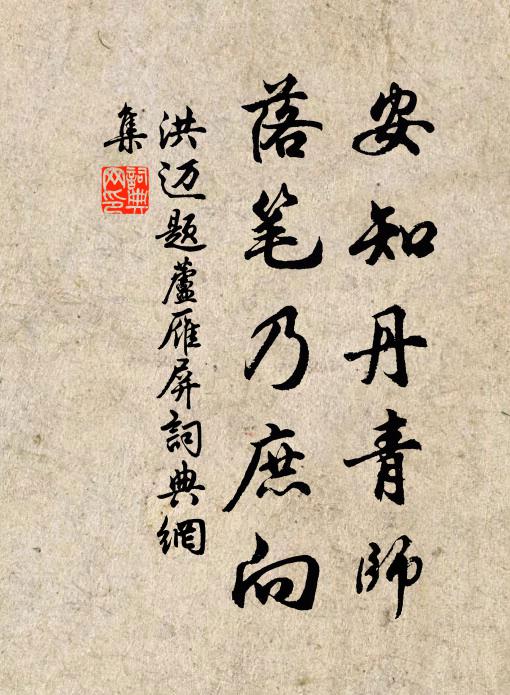 安知丹青師
落笔乃庶向
洪迈題蘆雁屏詞典網
集
詞典
网印